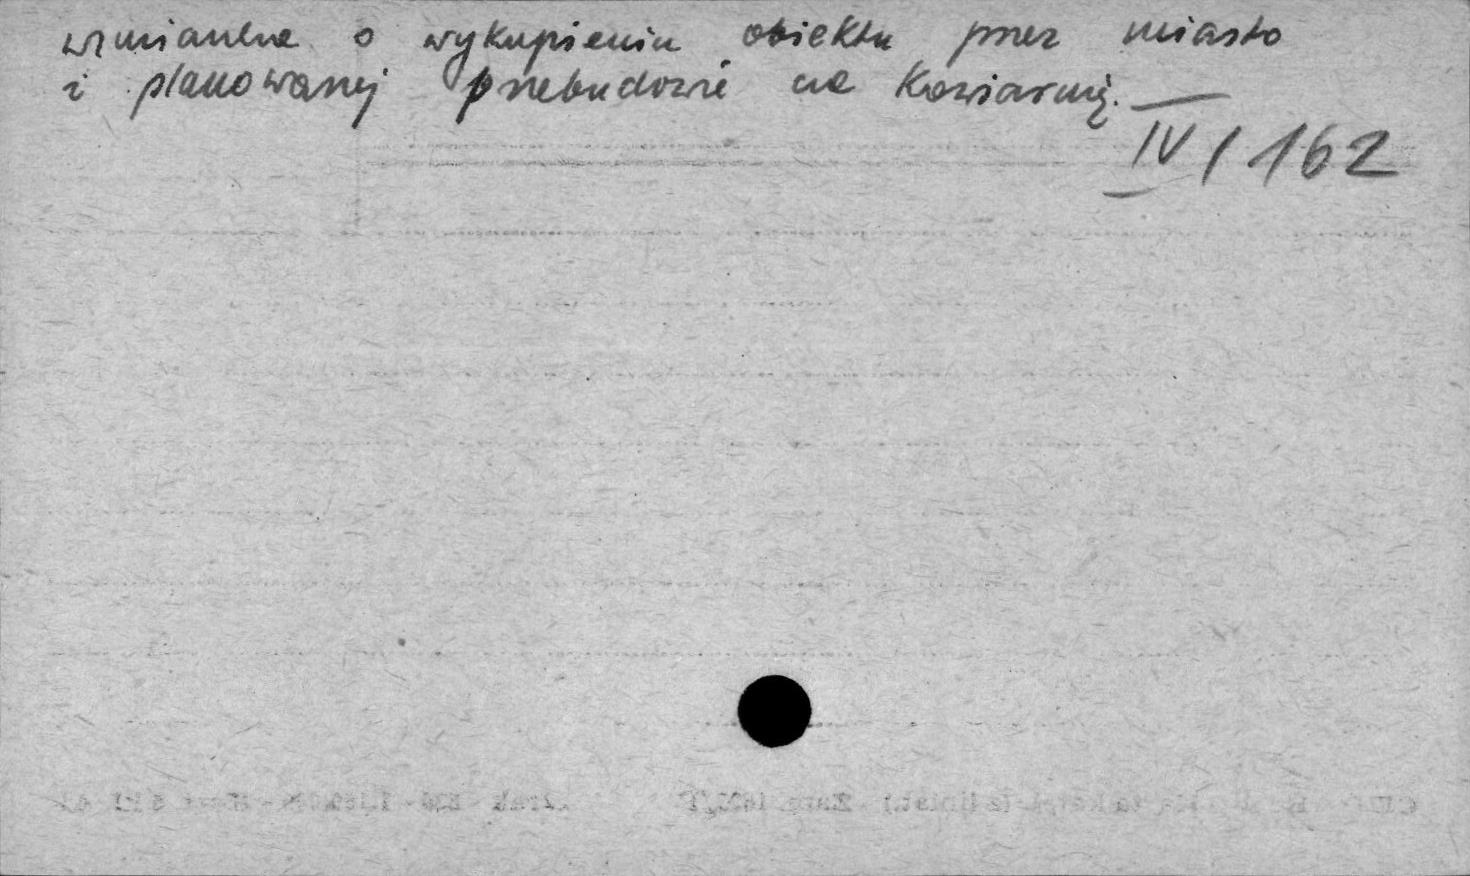 wzmianka o wykupieniu obiektu przez miasto
i planowanej przebudowie na kawiarnię.
IV / 162